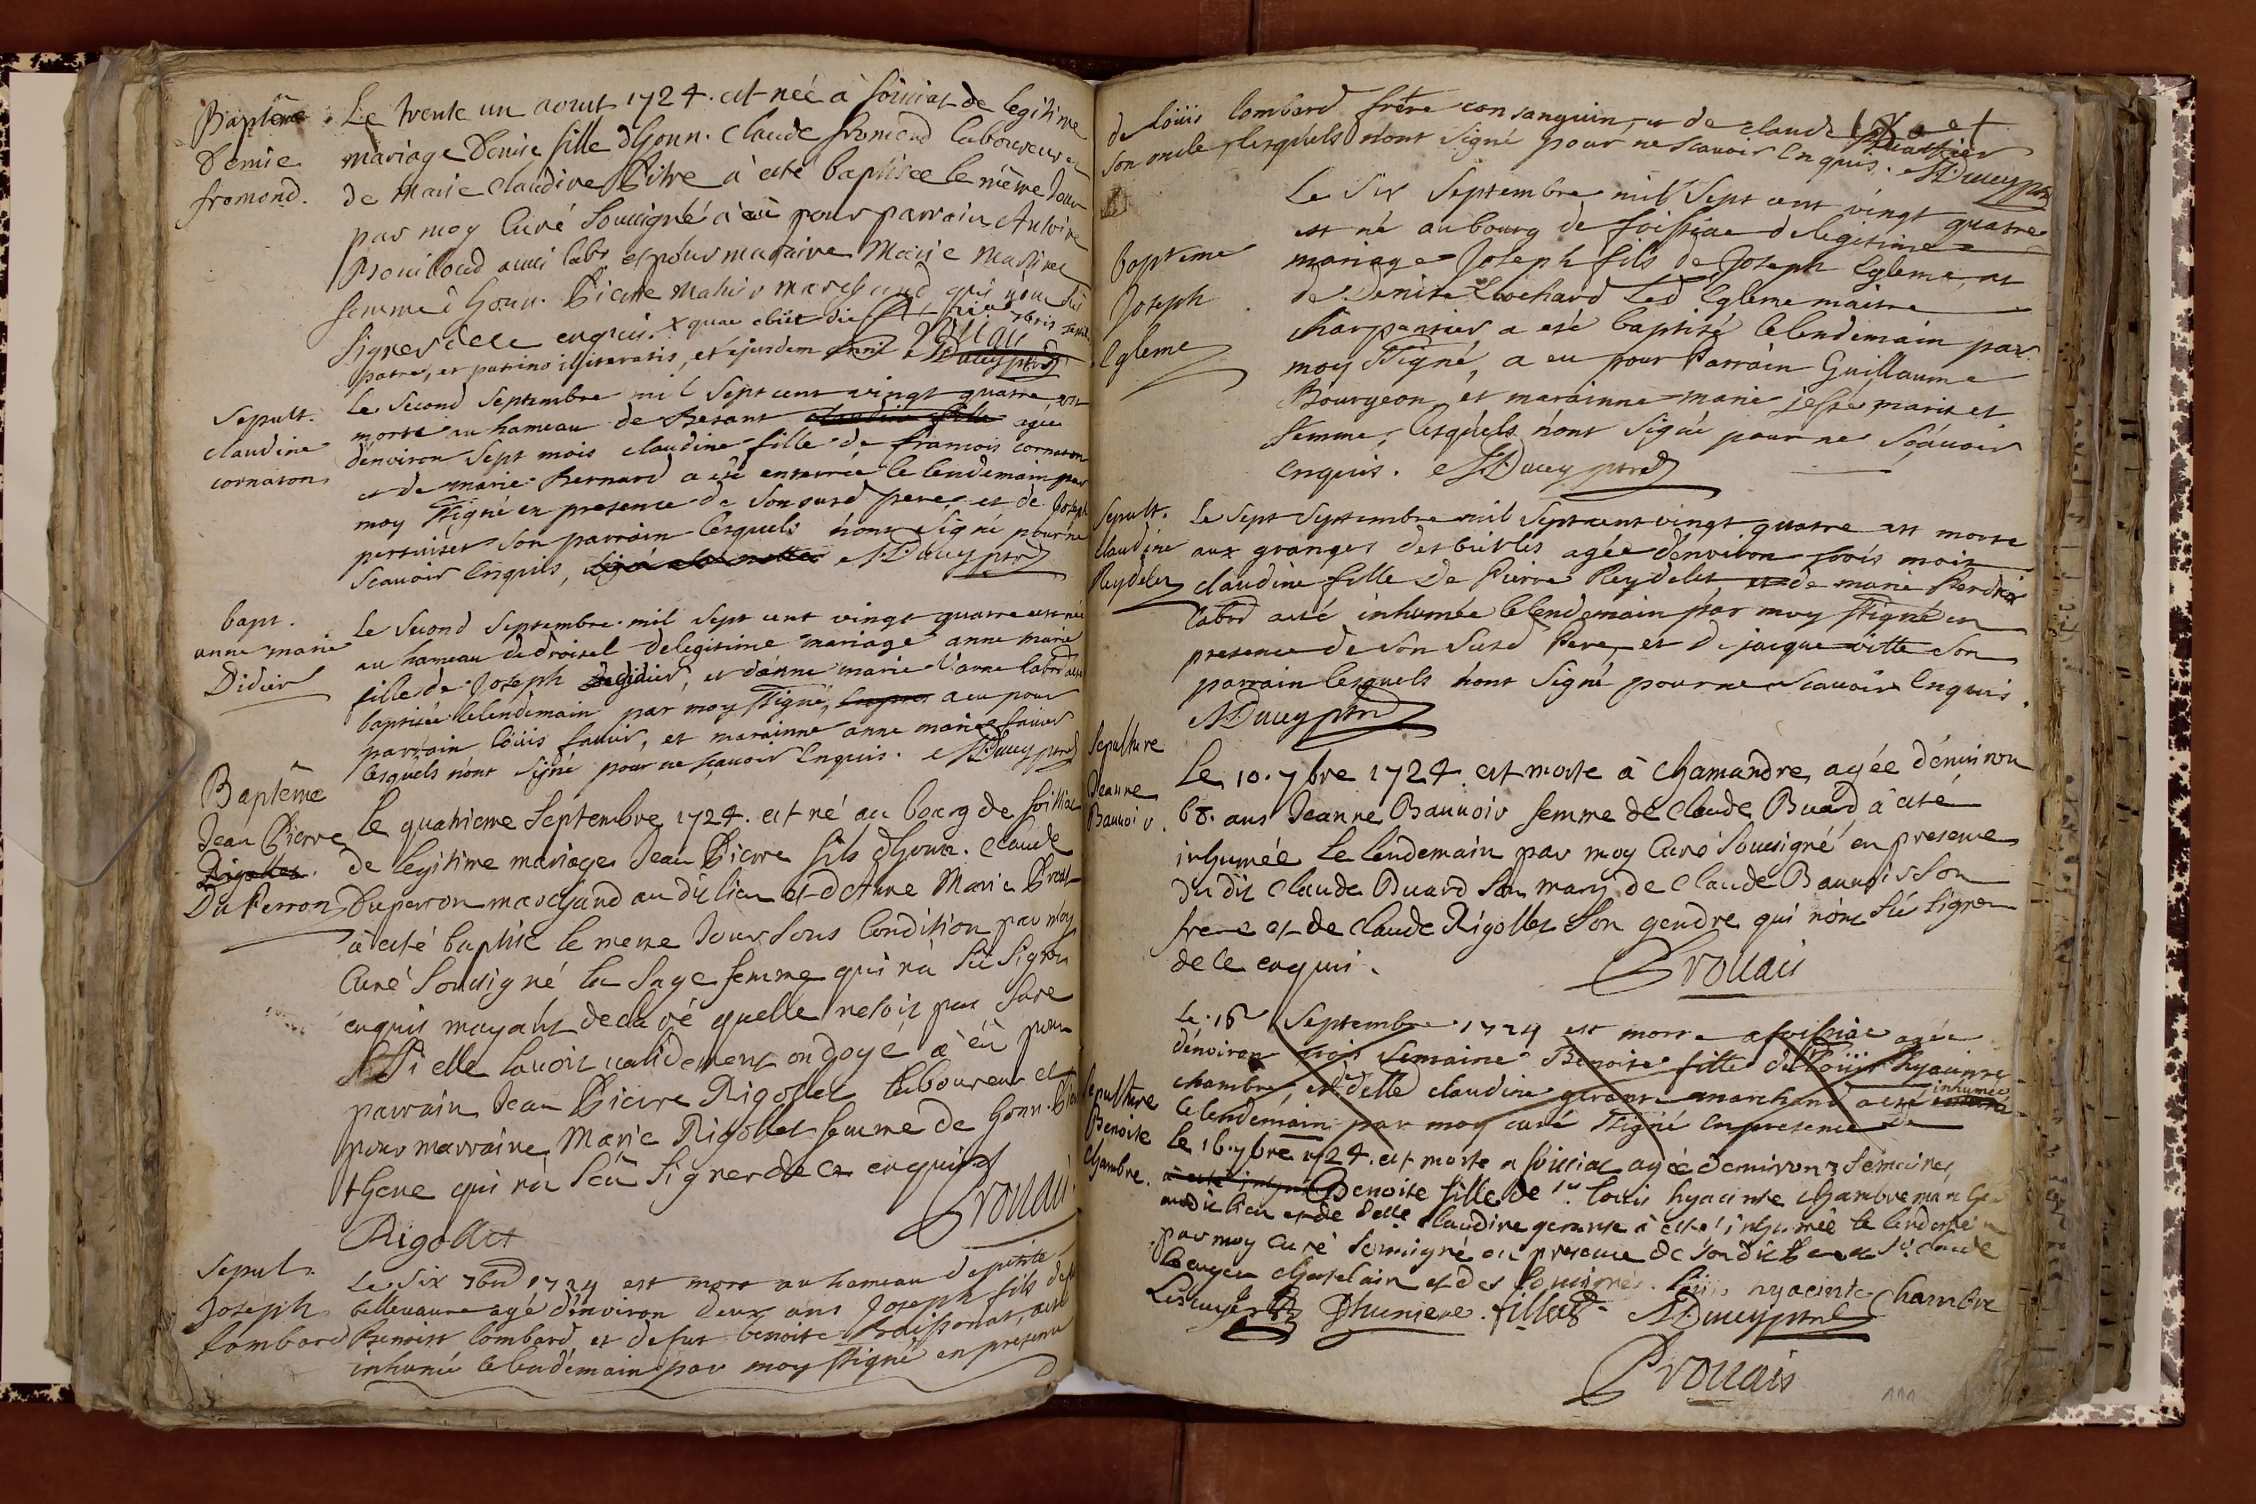 Baptême
Denise
fromond.
Le trente un aoust 1724. est née à foissiat de legitime
mariage Denise fille d'honn. Claude fromond laboureur et
de Marie Claudine Pitre à eté baptisée le même Jour
par moy Curé Soussigné à eü pour parrain Antoine
Prouilloud aussi labr et pour maraine Marie
femme d honn. Pierre Mahier marchand qui nont sü
signer de ce enquis. x quae obiit die
patre, et patrino illiteratis, et ejusdem anni NDucuy ptre
Sepult.
claudine
cornaton
Le second Septembre mil sept cent vingt quatre, est
morte au hameau de Besant claudine fille agée
d'environ sept mois claudine fille de francois cornaton
et de marie Bernard a eté enterrée le lendemain par
moy ssigné en presence de son susd pere, et de Joseph
perruiset son parrain lesquels n'ont signé pour ne
scavoir Enquis, NDucuy ptre
bapt.
anne marie
Didier
Le second Septembre mil sept cent vingt quatre est née
au hameau de droisel de legitime mariage anne marie
fille de Joseph didier, et d'anne marie labrd a eté
baptisée le lendemain par moy ssigné, a eu pour
parrain Loüis favier, et marainne anne marie favier
lesquels n'ont signé pour ne scavoir Enquis. NDucuy ptre
Baptême
Jean Pierre
Rigollet.
Du Perron
Le quatrieme Septembre 1724. est né au bourg de foissiat
de legitime mariage Jean Pierre fils d'honn. claude
Duperron marchand au dit lieu et d'Anne Marie
à eté baptisé le meme Jour sous Condition par moy
Curé Soussigné la sage femme qui n'à sü signer
enquis mayant declaré quelle netoit pas sure
si elle lavoit validement ondoyé à eü pour
parrain Jean Pierre Rigollet laboureur et
pour marraine Marie Rigollet femme de honn.
qui n'à sçeu signer de ce enquis
Rigollet Provuais
Sepult.
Joseph
Lombard
Le six 7bre 1724 est mort au hameau de petite
bellevavre agé d'environ deux ans Joseph fils de
Benoist Lombard et de fut benoite a eté
inhumé le lendemain par moy ssigné en presence
de Loüis lombard frère consanguin, et de claude
son oncle, lesquels n'ont signé pour ne scavoir Enquis. NDucuy ptre
bapteme
Joseph
Egleme
Le six Septembre mil sept cent vingt quatre
est né au bourg de foissiat de legitime
mariage Joseph fils de Joseph Egleme, et
de Denise Brochard led Egleme maitre
charpentier a eté baptisé le lendemain par
moy ssigné, a eu pour Parrain Guillaume
Bourgeon, et marainne marie maris et
femme, lesquels n'ont signé pour ne sçavoir
enquis. NDucuy ptre
Sepult.
Claudine
Reydelet
Le sept Septembre mil sept cent vingt quatre est morte
aux granges agée d'environ trois mois
claudine fille De Pierre Reydelet et de marie Perdrix
labrd a eté inhumée le lendemain par moy ssigné en
presence de son susd Pere, et de jacque vitte son
parrain lesquels n'ont signé pour ne scavoir Enquis.
NDucuy ptre
Sepulture
Jeanne
Bauvoir.
Le 10. 7bre 1724. est morte à chamandre, agée d'environ
68. ans Jeanne Bauvoir femme de claude Buard à eté
inhumée le lendemain par moy Curé Soussigné en presence
du dit Claude Buard son mary de claude Bauvoir son
frere et de claude Rigollet son gendre qui n'ont sü signer
de ce enquis. Provuais
Le 16 Septembre 1724 est morte a foissiat agée
d'environ trois semaine Benoite fille de Louis hyacinte
chambre, et de delle claudine gerante marchand a eté inhumée
le lendemain par moy curé ssigné en presence de
Sepulture
Benoite
Chambre.
Le 16. 7bre 1724. est morte a foissiat agée d'environ 3 semaines
Benoite fille de sr. louis hyacinte chambre march
au dit lieu et de delle claudine gerante à eté inhumée le lendemain
par moy curé soussigné en presence de son dit pere et sr. claude
chatelain et des soussignés. Louis hyacinte Chambre
fillod NDucuy ptre
Provuais